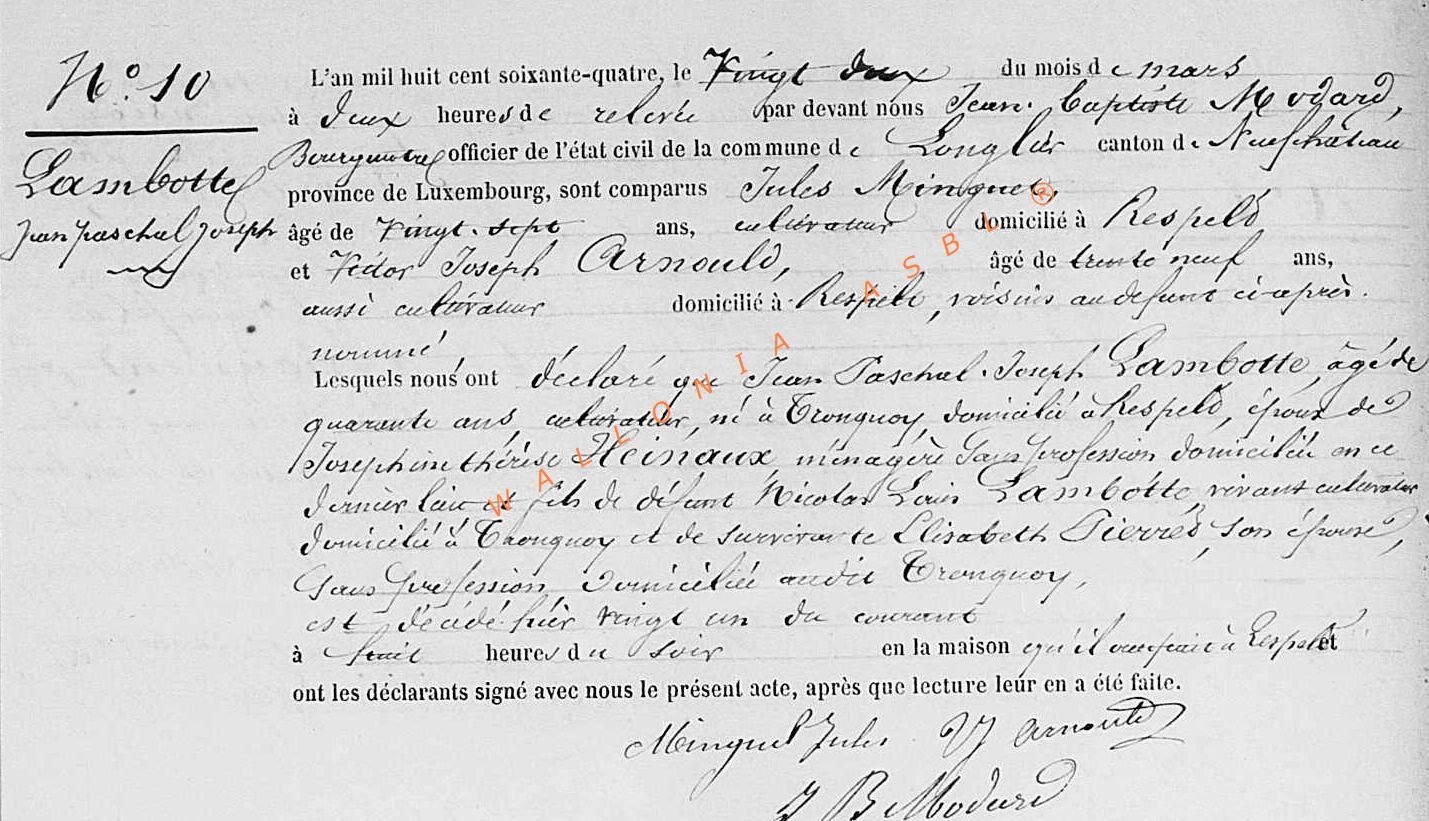 N° 10
Lambotte
Jean paschal Joseph
L'an mil huit cent soixante-quatre, le Vingt deux du mois de mars
à Deux heures de relevée par devant nous Jean-Baptiste Modard,
Bourgmestre officier de l'état civil de la commune de Longlier canton de Neufchateau
province de Luxembourg, sont comparus Jules Minguet,
âgé de Vingt-sept ans, cultivateur domicilié à Respelt
et Victor Joseph Arnould, âgé de trente neuf ans,
aussi cultivateur domicilié à Respelt, voisins au defunt ci-après
nommé,
Lesquels nous ont déclaré que Jean Paschal-Joseph Lambotte, âgé de
quarante ans, cultivateur, né à Tronquoy, domicilié à Respelt, époux de
Josephine thérèse Heinaux, ménagère sans profession domiciliée en ce
dernier lieu et fils de défunt Nicolas Louis Lambotte, vivant cultivateur
domicilié à Tronquoy et de survivante Elisabeth Pierret, son épouse,
sans profession, domiciliée audit Tronquoy,
est décédé hier vingt un du courant
à huit heures du soir en la maison qu'il occupait à Respelt et
ont les déclarants signé avec nous le présent acte, après que lecture leur en a été faite.
Minguet Jules VJ Arnould
J B Modard
WALLONIA ASBL ®